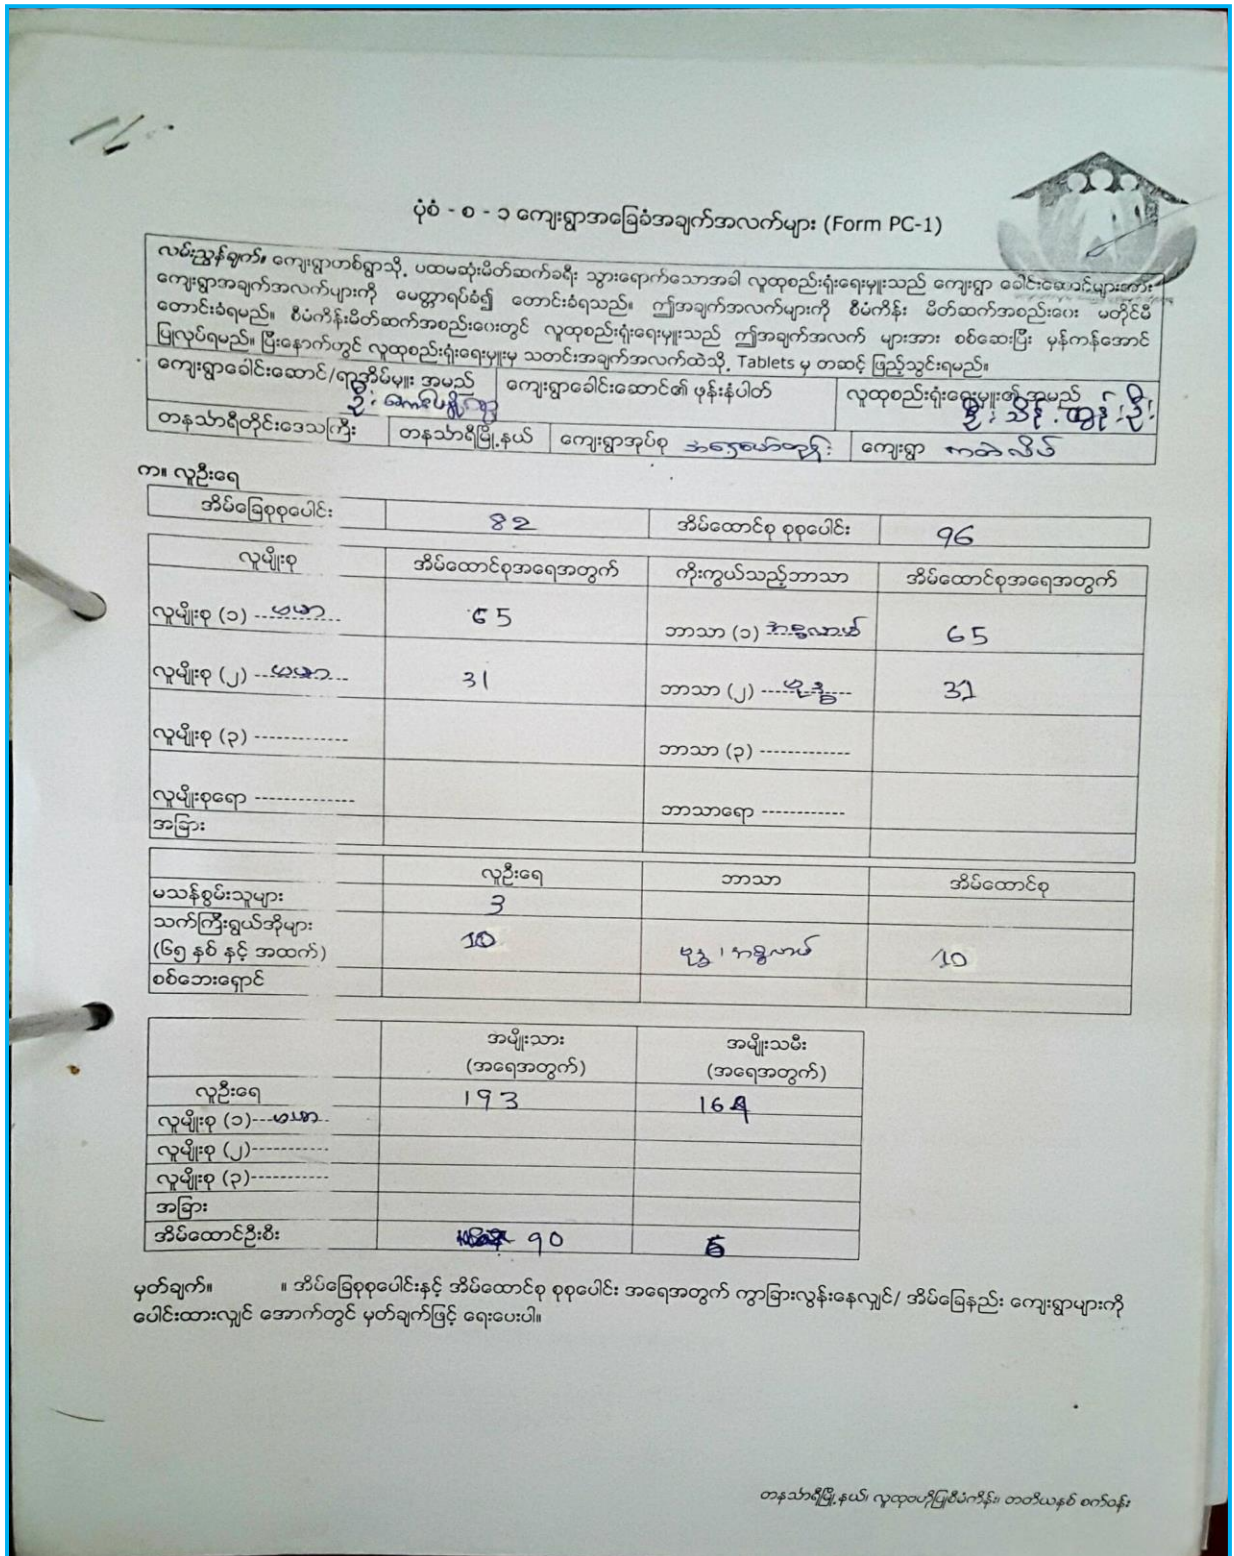 ပုံစံ - စ - ၁ ကျေးရွာအခြေခံအချက်အလက်များ (Form PC-1)
လမ်းညွှန်ချက်။ ကျေးရွာတစ်ရွာသို့ ပထမဆုံးမိတ်ဆက်ခရီး သွားရောက်သောအခါ လူထုစည်းရုံးရေးမှူးသည် ကျေးရွာ ခေါင်းဆောင်များအား
ကျေးရွာအချက်အလက်များကို မေတ္တာရပ်ခံ၍ တောင်းခံရသည်။ ဤအချက်အလက်များကို စီမံကိန်း မိတ်ဆက်အစည်းဝေး မတိုင်မီ
တောင်းခံရမည်။ စီမံကိန်းမိတ်ဆက်အစည်းဝေးတွင် လူထုစည်းရုံးရေးမှူးသည် ဤအချက်အလက် များအား စစ်ဆေးပြီး မှန်ကန်အောင်
ပြုလုပ်ရမည်။ ပြီးနောက်တွင် လူထုစည်းရုံးရေးမှူးမှ သတင်းအချက်အလက်ထဲသို့ Tablets မှ တဆင့် ဖြည့်သွင်းရမည်။
ကျေးရွာခေါင်းဆောင်/ရာအိမ်မှူး အမည် ကျေးရွာခေါင်းဆောင်၏ ဖုန်းနံပါတ် လူထုစည်းရုံးရေးမှူး၏ အမည်
ဦး ဦး သိန်းထွန်းဦး
တနင်္သာရီတိုင်းဒေသကြီး တနင်္သာရီမြို့နယ် ကျေးရွာအုပ်စု ကျေးရွာ
က။ လူဦးရေ
အိမ်ခြေစုစုပေါင်း 82 အိမ်ထောင်စု စုစုပေါင်း 96
လူမျိုးစု အိမ်ထောင်စုအရေအတွက် ကိုးကွယ်သည့်ဘာသာ အိမ်ထောင်စုအရေအတွက်
လူမျိုးစု (၁) ဗမာ 65 ဘာသာ (၁) အစ္စလာမ် 65
လူမျိုးစု (၂) ဗမာ 31 ဘာသာ (၂) ဗုဒ္ဓ 31
လူမျိုးစု (၃) ------------- ဘာသာ (၃) -------------
လူမျိုးစုရော -------------- ဘာသာရော ------------
အခြား
လူဦးရေ ဘာသာ အိမ်ထောင်စု
မသန်စွမ်းသူများ 3
သက်ကြီးရွယ်အိုများ
(၆၅ နှစ် နှင့် အထက်) 10 ဗုဒ္ဓ ၊ အစ္စလာမ် 10
စစ်ဘေးရှောင်
အမျိုးသား အမျိုးသမီး
(အရေအတွက်) (အရေအတွက်)
လူဦးရေ 193
လူမျိုးစု (၁) ဗမာ
လူမျိုးစု (၂)-----------
လူမျိုးစု (၃)-----------
အခြား
အိမ်ထောင်ဦးစီး 90
မှတ်ချက်။ ။ အိပ်ခြေစုစုပေါင်းနှင့် အိမ်ထောင်စု စုစုပေါင်း အရေအတွက် ကွာခြားလွန်းနေလျှင်/ အိမ်ခြေနည်း ကျေးရွာများကို
ပေါင်းထားလျှင် အောက်တွင် မှတ်ချက်ဖြင့် ရေးပေးပါ။
တနင်္သာရီမြို့နယ်၊ လူထုဗဟိုပြုစီမံကိန်း၊ တတိယနှစ် စက်ဝန်း